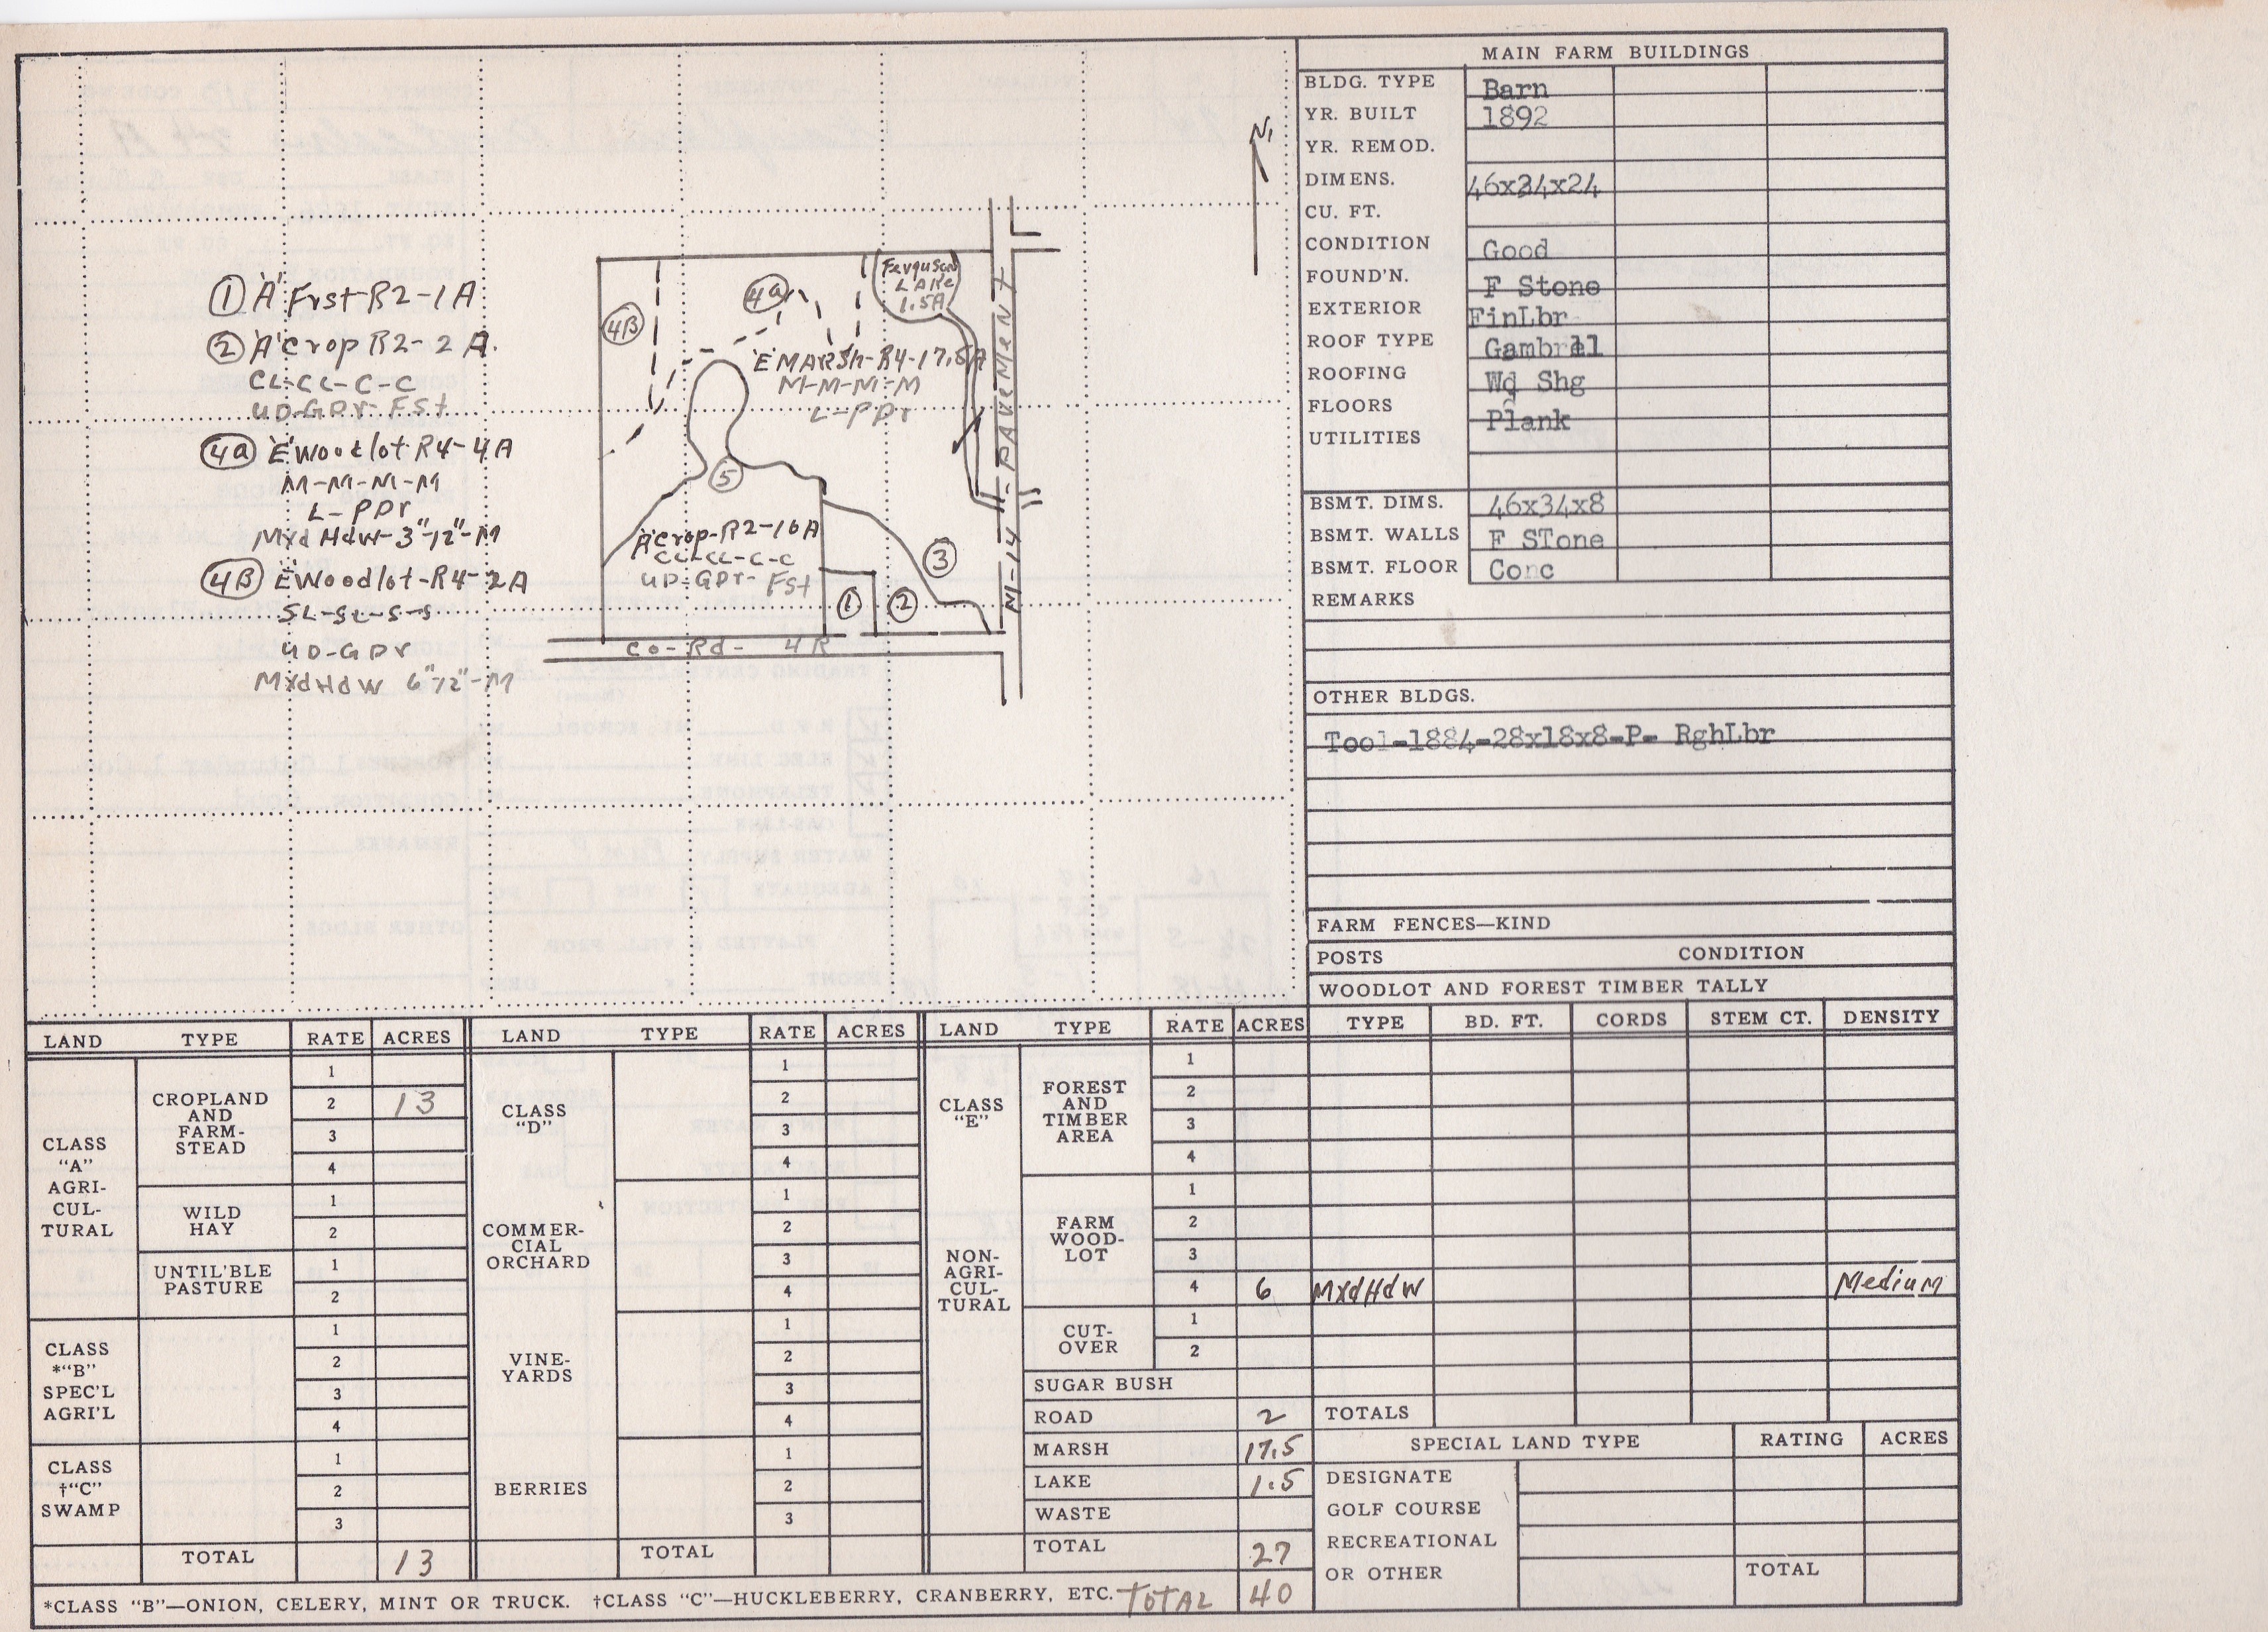 MAIN FARM BUILDINGS
BLDG. TYPE Barn
YR. BUILT 1892
YR. REMOD.
DIMENS. 46x34x24
CU. FT.
CONDITION Good
FOUND'N. F Stone
EXTERIOR FinLbr
ROOF TYPE Gambrel
ROOFING Wd Shg
FLOORS Plank
UTILITIES
BSMT. DIMS. 46x34x8
BSMT. WALLS F STone
BSMT. FLOOR Conc
REMARKS
OTHER BLDGS.
Tool-1884-28x18x8-P- RghLbr
FARM FENCES—KIND
POSTS CONDITION
WOODLOT AND FOREST TIMBER TALLY
N.
1 "A" Frst-R2-1A
2 "A" crop R2-2A.
CL-CL-C-C
UD-GPr-FSt
4a "E" Woodlot R4-4A
M-M-M-M
L-PDr
Mxd Hdw-3"-12"-M
4B "E" Woodlot-R4-2A
SL-SL-S-S
UD-GDr
MxdHdw 6"-12"-M
4B
4a
Ferguson
LAKe
1.5A
"E" MARSh-R4-17.5A
M-M-M-M
L-PDr
5
"A" crop-R2-10A
CL-CL-C-C
UD-GPr-FSt
1
2
3
M-14 - PAVeMeNt
Co-Rd- 4R
LAND TYPE RATE ACRES LAND TYPE RATE ACRES LAND TYPE RATE ACRES TYPE BD. FT. CORDS STEM CT. DENSITY
CLASS
"A"
AGRI-
CUL-
TURAL
CROPLAND
AND
FARM-
STEAD
1
2 13
3
4
WILD
HAY
1
2
UNTIL'BLE
PASTURE
1
2
CLASS
*"B"
SPEC'L
AGRI'L
1
2
3
4
CLASS
†"C"
SWAMP
1
2
3
TOTAL 13
CLASS
"D"
1
2
3
4
COMMER-
CIAL
ORCHARD
1
2
3
4
VINE-
YARDS
1
2
3
4
BERRIES
1
2
3
TOTAL
CLASS
"E"
NON-
AGRI-
CUL-
TURAL
FOREST
AND
TIMBER
AREA
1
2
3
4
FARM
WOOD-
LOT
1
2
3
4 6 MxdHdw Medium
CUT-
OVER
1
2
SUGAR BUSH
ROAD 2 TOTALS
MARSH 17.5
LAKE 1.5
WASTE
TOTAL 27
SPECIAL LAND TYPE RATING ACRES
DESIGNATE
GOLF COURSE
RECREATIONAL
OR OTHER
TOTAL
*CLASS "B"—ONION, CELERY, MINT OR TRUCK. †CLASS "C"—HUCKLEBERRY, CRANBERRY, ETC. TOTAL 40